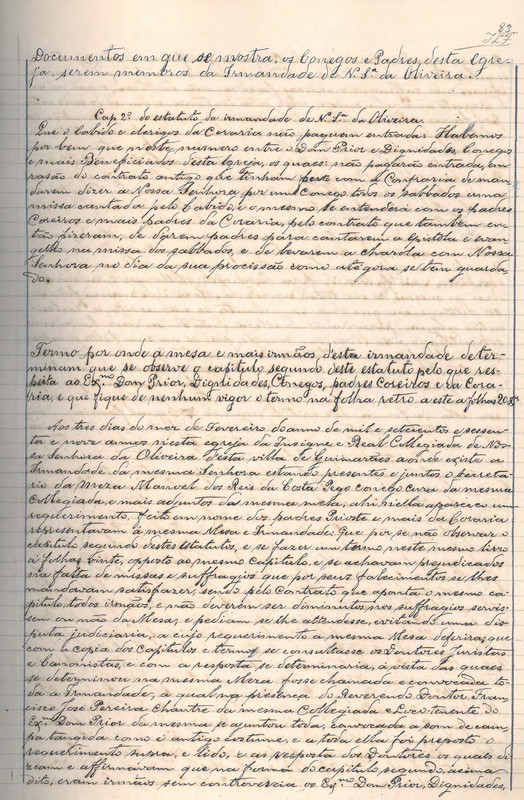 Documentos em que se mostra, os Conegos e Padres, desta Egre-
ja, serem membros da Irmandade de N. Sª da Oliveira.
Cap. 2º do estatuto da irmandade de N. Sª da Oliveira.
Que o Cabido e clerigos da Coraria não paguem entrada: Habemos
por bem que n'este numero entre o Dom Prior e Dignidades, Conegos
e mais Beneficiados desta Egreja, os quaes: não pagarão entrada, em
rasão do contrato antigo que tinham feito com a Confraria de man-
darem dizer a Nossa Senhora por um Conego todos os Sabbados uma
missa cantada pelo Cabido, e o mesmo, se entenderá com os padres
Coreiros e mais padres da Coraria, pelo contrato que tambem en-
tão fizeram, de darem padres para cantarem a Epistola e evan-
gelho na missa dos sabbados, e de levarem a charóla com Nossa
Senhora no dia da sua procissão como até gora se tem guarda-
do.
Termo por onde a mesa e mais irmãos, d'esta irmandade deter-
minam que se observe o capitulo segundo deste estatuto pelo que res-
peita ao Exmº Dom Prior, Dignidades, Conegos, padres Coreiros e da Cora-
ria, e que fique de nenhum vigor o termo na folha retro a este a folhas 20
Aos tres dias do mez de Fevereiro do anno de mil e setecentos e sessen-
ta e nove annos n'esta egreja da Insigne e Real Collegiada de Nos-
sa Senhora da Oliveira desta villa de Guimarães aonde existe a
Irmandade da mesma Senhora estando presentes e juntos o secreta-
rio da meza Manoel dos Reis da Costa Pego conego cura da mesma
Collegiada, e mais adjuntos da mesma meza, ahi n'ella appareceu um
requerimento, feito em nome dos padres Prioste e mais da Coraria
representavam á mesma Mesa e Irmandade: Que por se não observar o
capitulo segundo destes Estatutos, e se fazer um termo neste mesmo livro
a folhas vinte, opposto ao mesmo Capitulo, e se achavam prejudicados
na falta de missas e suffragios que por seus falecimentos se lhes
mandavam satisfazer, sendo pelo Contrato que aponta o mesmo ca-
pitulo, todos irmãos, e não deverem ser diminutos nos suffragios servis-
sem ou não da Mesa; e pediam se lhe attendesse, evitando uma dis-
puta judiciaria, a cujo requerimento a mesma Mesa deferira, que
com a copia dos Capitulos e termos se consultasse os Doutores Juristas
e Canonistas, e com a resposta se determinaria, á vista das quaes
se determinou na mesma Mesa fosse chamada e convocada to-
da a Irmandade, a qual na presença do Reverendo Doutor Fran-
cisco José Pereira Chantre da mesma Collegiada e Loco-tenente do
Exmº Dom Prior da mesma se ajuntou toda, convocada a som de cam-
pa tangida como é antigo costume, e a toda ella foi proposto o
requerimento supra, e lido, e as resposta dos Doutores os quaes di-
ziam e affirmavam que na forma do capitulo segundo, acima
dito, eram irmãos sem controversia os Exmº Dom Prior, Dignidades,